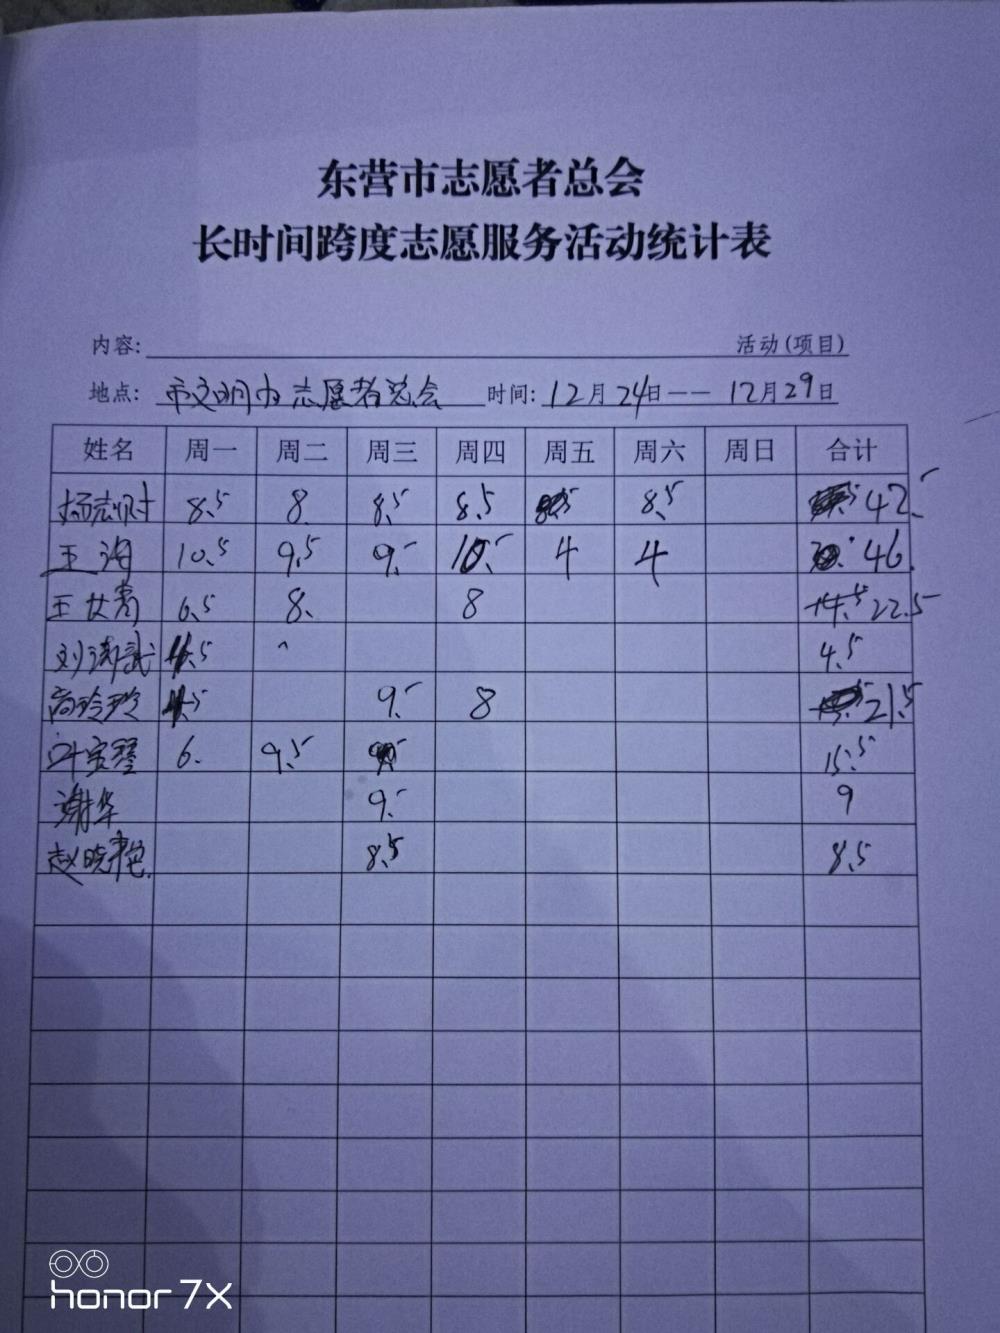 东营市志愿者总会
长时间跨度志愿服务活动统计表
内容: 活动(项目)
地点: 市文明办志愿者总会 时间: 12月24日—— 12月29日
姓名 周一 周二 周三 周四 周五 周六 周日 合计
8.5 8 8.5 8.5 8.5 42.
王海 10.5 9.5 9. 10. 4 4 46.
王女青 6.5 8. 8 22.5
4.5
尚玲玲 9. 8 21.5
叶宝琴 6. 9.5 15.5
谢华 9. 9
赵晓艳. 8.5 8.5
honor 7X